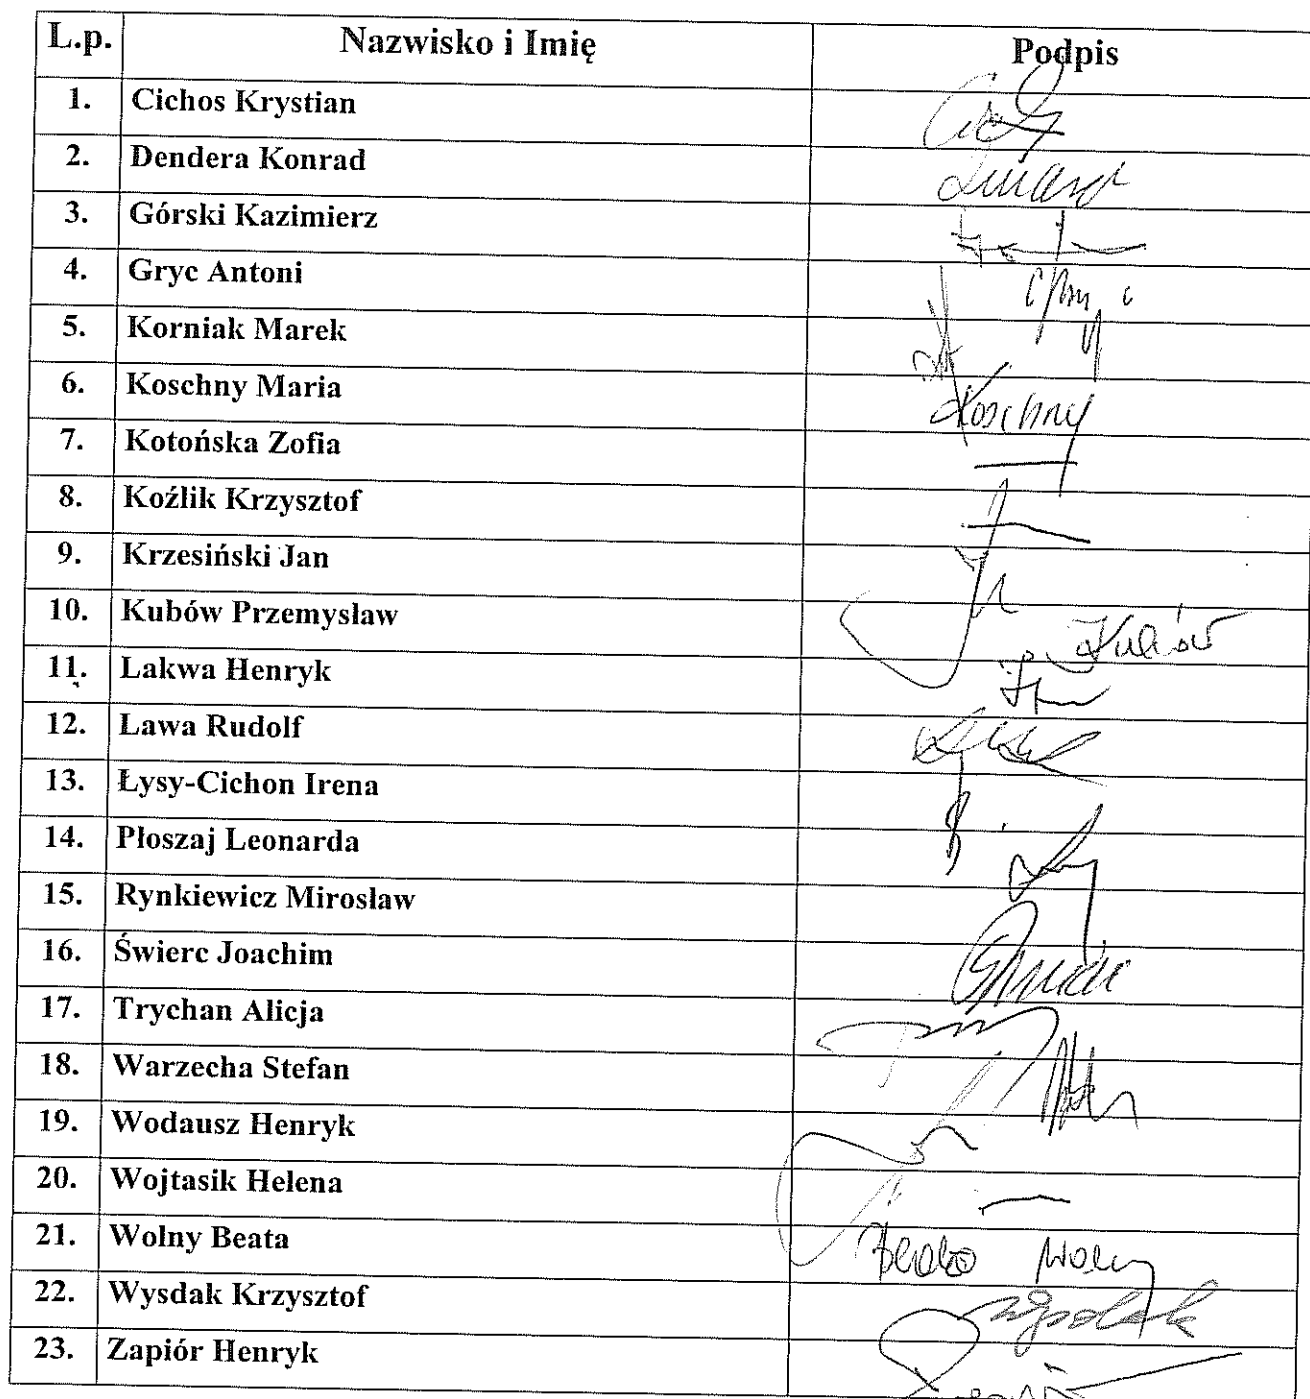 L.p. Nazwisko i Imię Podpis
1. Cichos Krystian
2. Dendera Konrad
3. Górski Kazimierz
4. Gryc Antoni
5. Korniak Marek
6. Koschny Maria Koschny
7. Kotońska Zofia
8. Koźlik Krzysztof
9. Krzesiński Jan
10. Kubów Przemysław Kubów
11. Lakwa Henryk
12. Lawa Rudolf
13. Łysy-Cichon Irena
14. Płoszaj Leonarda
15. Rynkiewicz Mirosław
16. Świerc Joachim
17. Trychan Alicja
18. Warzecha Stefan
19. Wodausz Henryk
20. Wojtasik Helena
21. Wolny Beata Beata Wolny
22. Wysdak Krzysztof Wysdak
23. Zapiór Henryk